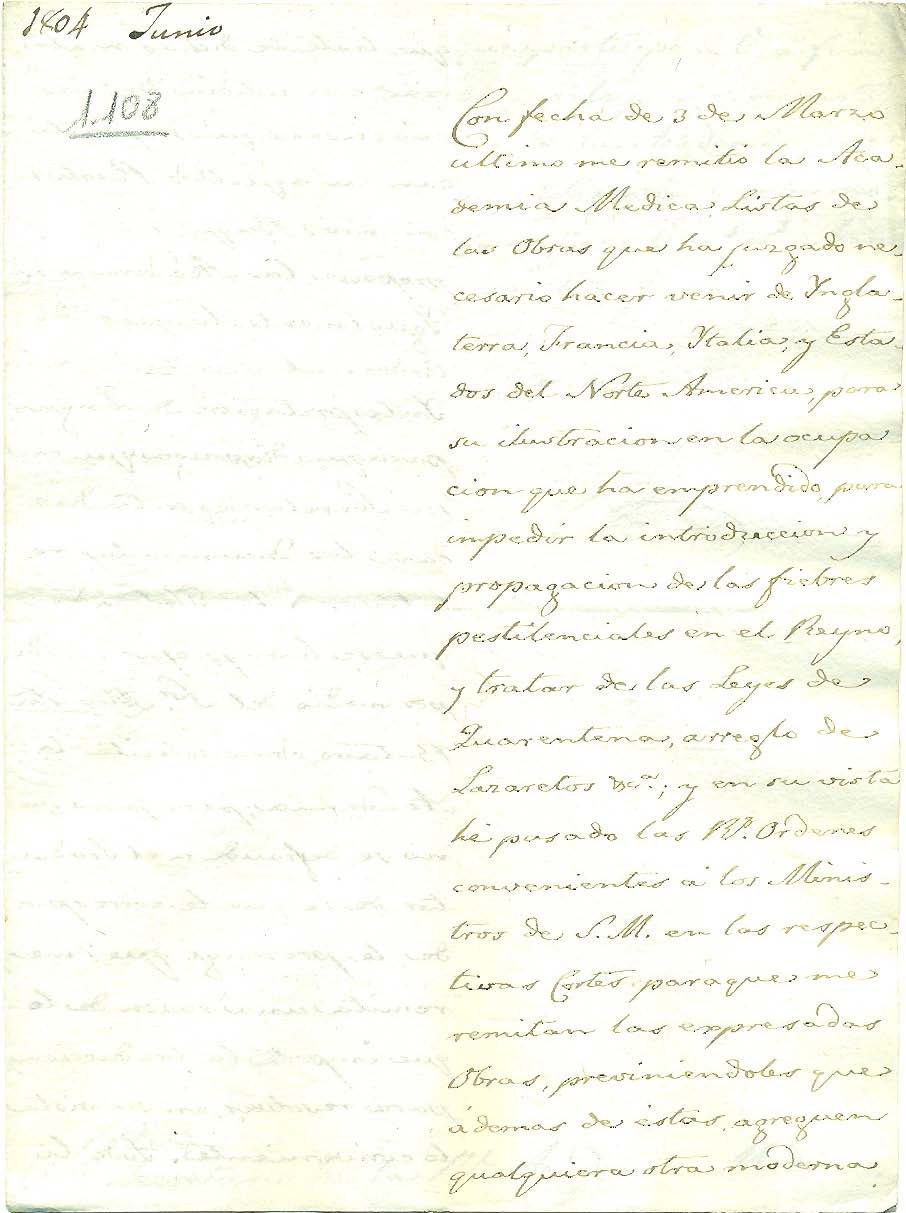 1804 Junio
1.108
Con fecha de 3 de Marzo
ultimo me remitió la Aca-
demia Medica Listas de
las Obras que ha juzgado ne
cesario hacer venir de Yngla-
terra, Francia, Ytalia, y Esta-
dos del Norte America, para
su ilustracion en la ocupa
cion que ha emprendido, para
impedir la introduccion y
propagacion de las fiebres
pestilenciales en el Reyno,
y tratar de las Leyes de
Quarentena, arreglo de
Lazaretos &c.ª; y en su vista
hé pasado las Rl.s Ordenes
convenientes á los Minis-
tros de S. M. en las respec-
tivas Cortes, paraque me
remitan las expresadas
Obras, previniendoles que
ádemas de éstas, agreguen
qualquiera otra moderna